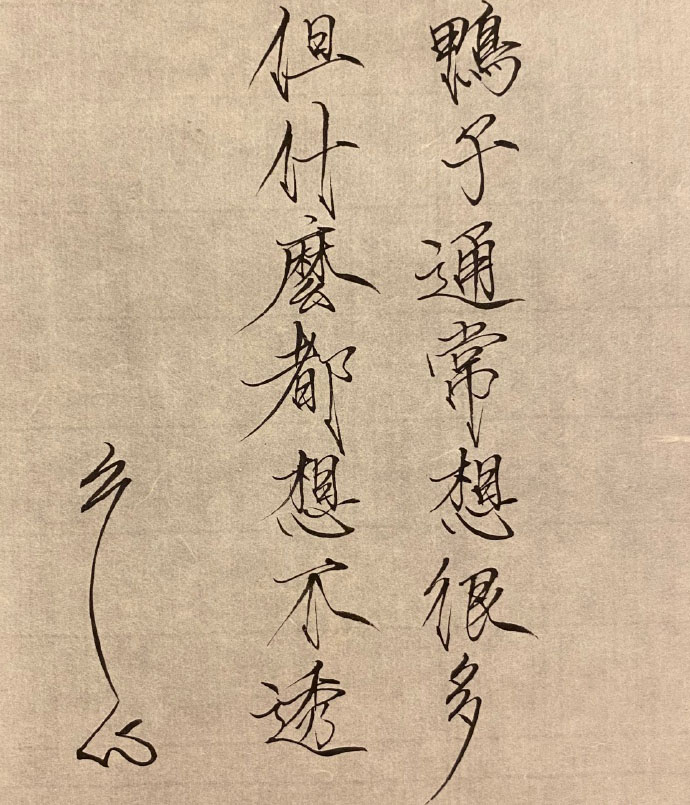 鴨子通常想很多
但什麼都想不透